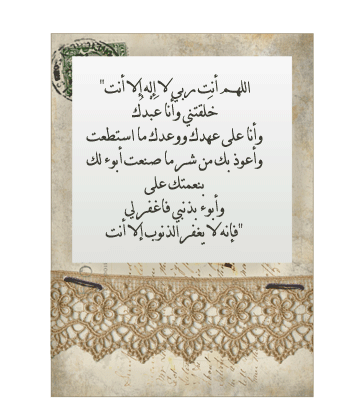 "اللهم أنت ربي لا إله إلا أنت
خلقتني وأنا عبدك
وأنا على عهدك ووعدك ما استطعت
وأعوذ بك من شر ما صنعت أبوء لك
بنعمتك على
وأبوء بذنبي فاغفر لي
فإنه لا يغفر الذنوب إلا أنت"